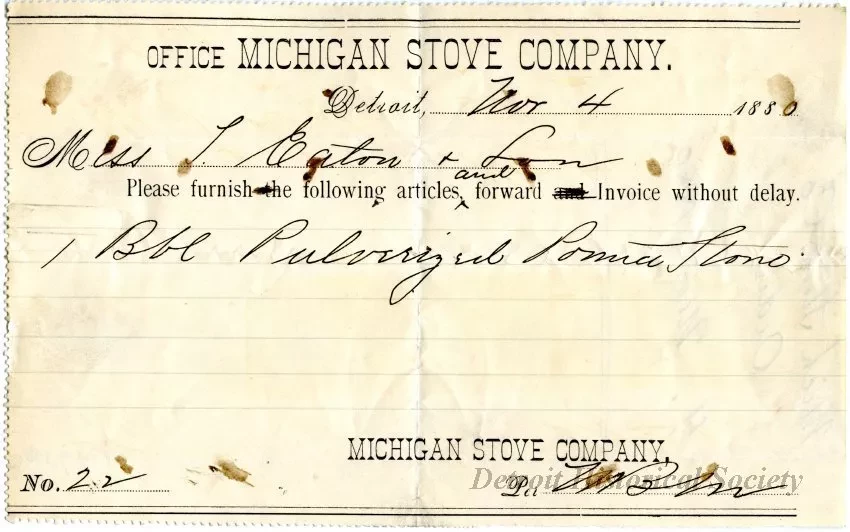 OFFICE MICHIGAN STOVE COMPANY.
Detroit, Nov 4 1880
Mess T. Eaton & Son
and
Please furnish the following articles, forward and Invoice without delay.
1 Bbl Pulverized Pomice Stone
MICHIGAN STOVE COMPANY,
No. 22
Per
Detroit Historical Society